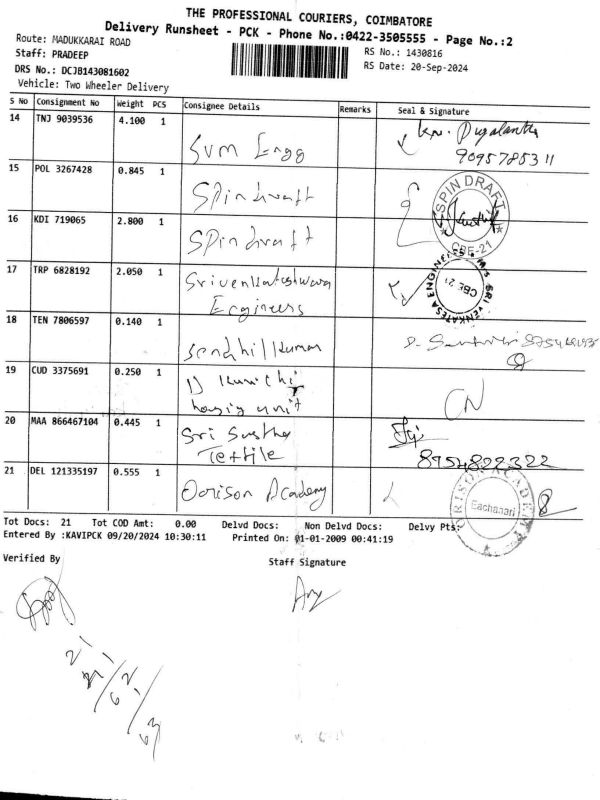 THE PROFESSIONAL COURIERS, COIMBATORE
Delivery Runsheet - PCK - Phone No.:0422-3505555 - Page No.:2
Route: MADUKKARAI ROAD
RS No.: 1430816
Staff: PRADEEP
RS Date: 20-Sep-2024
DRS No.: DCJB143081602
Vehicle: Two Wheeler Delivery
S No Consignment No Weight PCS Consignee Details Remarks Seal & Signature
14 TNJ 9039536 4.100 1 SVM Engg
9095785311
15 POL 3267428 0.845 1 Spindraft
SPIN DRAFT
CBE-21
16 KDI 719065 2.800 1 Spindraft
17 TRP 6828192 2.050 1 Srivenkateshwara
Engineers
M/s SRI VENKATESA ENGINEERS
CBE-21
18 TEN 7806597 0.140 1 Sendhilkumar
19 CUD 3375691 0.250 1 Kurichi
housig unit
CN
20 MAA 866467104 0.445 1 Sri Sustha
Textile
8954822322
21 DEL 121335197 0.555 1 Oorison Academy
ORISON ACADEMY
Eachanari
Tot Docs: 21 Tot COD Amt: 0.00 Delvd Docs: Non Delvd Docs: Delvy Pts:
Entered By :KAVIPCK 09/20/2024 10:30:11 Printed On: 01-01-2009 00:41:19
Verified By
Staff Signature